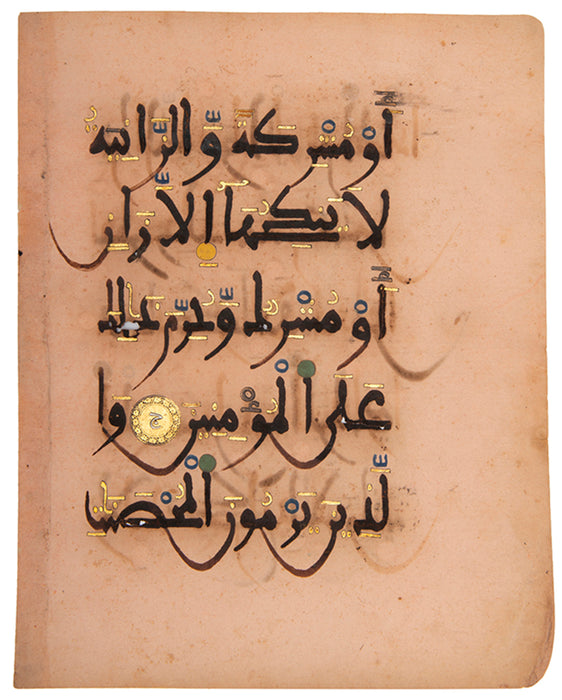 أَوْ مُشْرِكَةٌ وَّالزَّانِيَةُ
لَا يَنكِحُهَا إِلَّا زَانٍ
أَوْ مُشْرِكٌ وَّحُرِّمَ ذَٰلِكَ
عَلَى الْمُؤْمِنِينَ ج وَا
لَّذِينَ يَرْمُونَ الْمُحْصَنَٰتِ